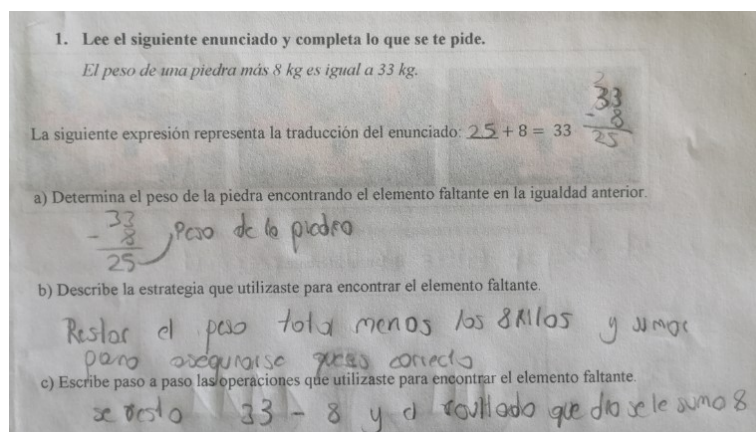 1. Lee el siguiente enunciado y completa lo que se te pide.
El peso de una piedra más 8 kg es igual a 33 kg.
La siguiente expresión representa la traducción del enunciado: 25 + 8 = 33
33
- 8
25
a) Determina el peso de la piedra encontrando el elemento faltante en la igualdad anterior.
33
- 8
25
Peso de la piedra
b) Describe la estrategia que utilizaste para encontrar el elemento faltante.
Restar el peso total menos los 8 kilos y sumar
para asegurarse que es correcto
c) Escribe paso a paso las operaciones que utilizaste para encontrar el elemento faltante.
se resto 33 - 8 y el resultado que dio se le sumo 8